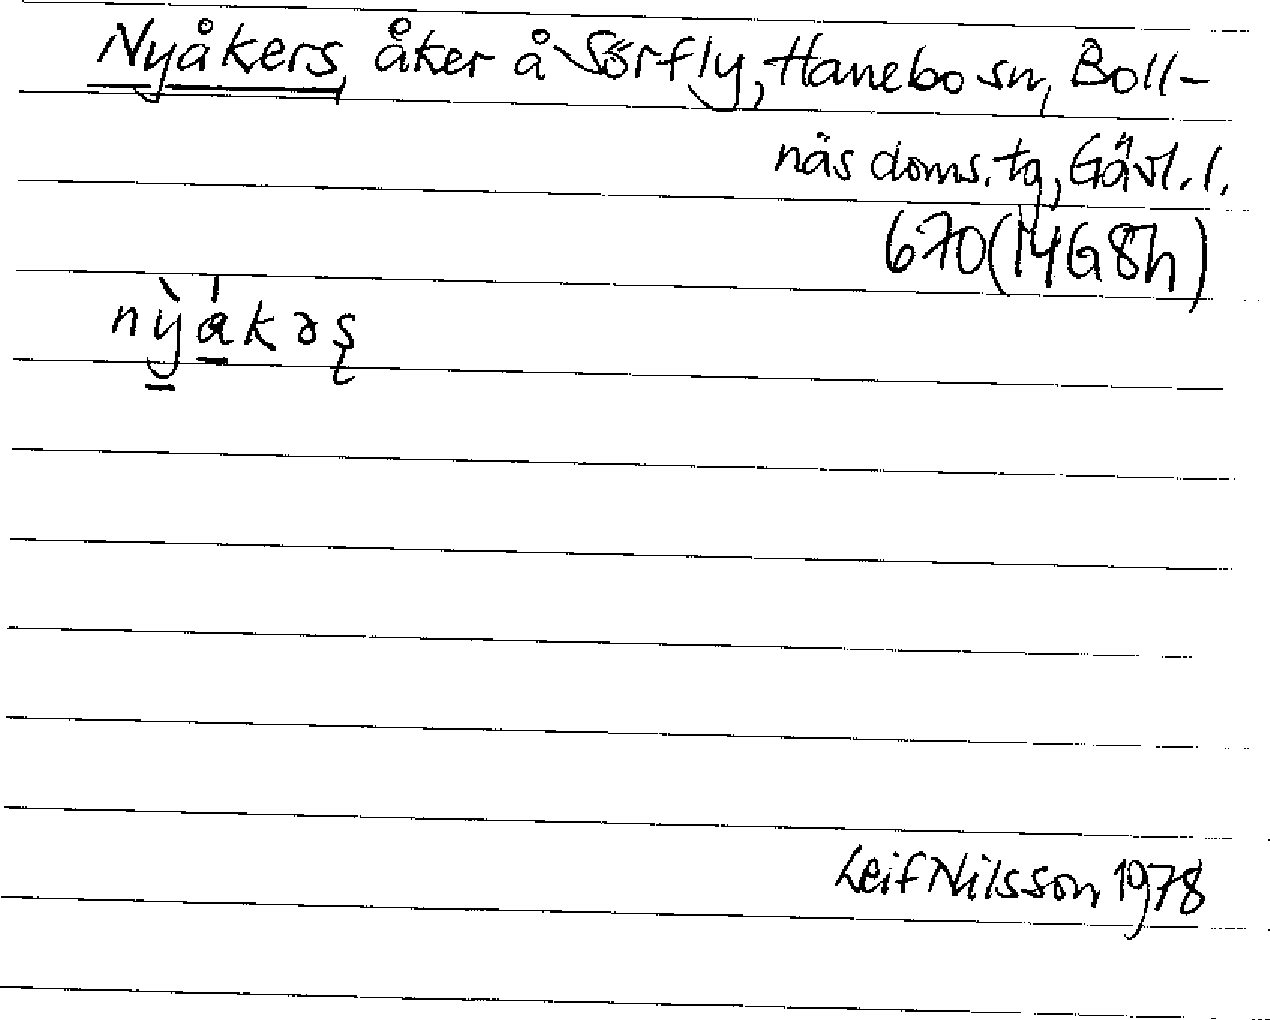 Nyåkers, åker å Sörfly, Hanebo sn, Boll-
näs doms. tg, Gävl. l.
670 (14G8h)
nỳa̍kəʂ
Leif Nilsson 1978